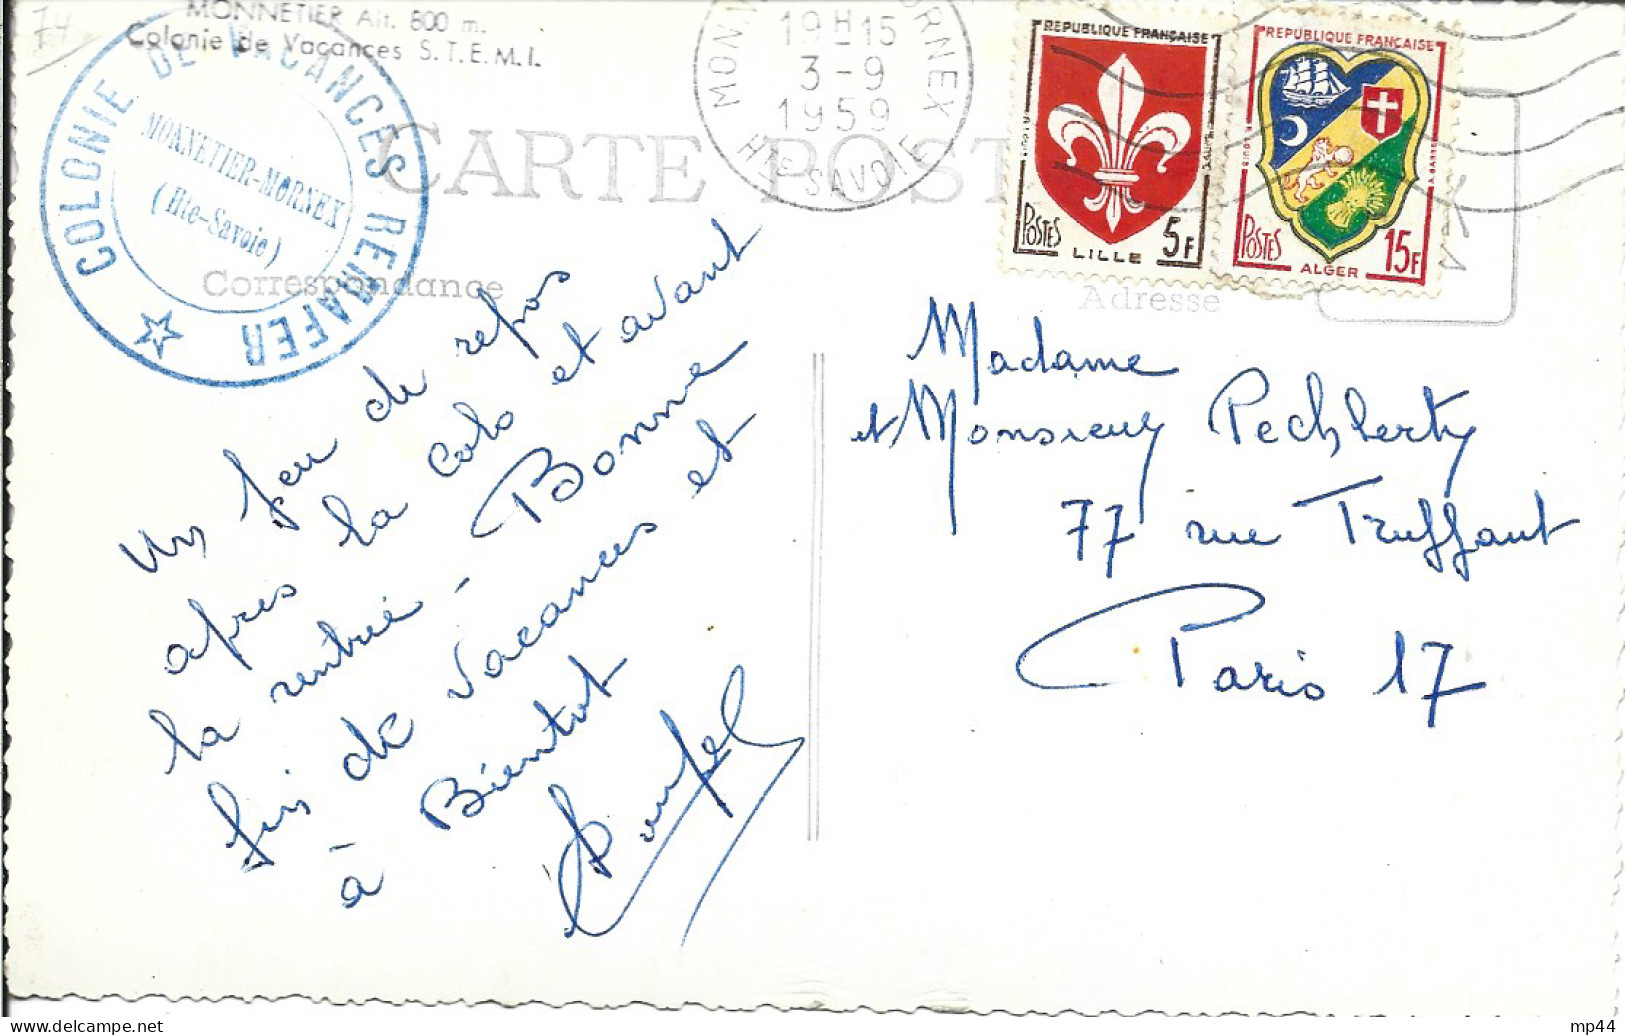 74
MONNETIER Alt. 800 m.
Colonie de Vacances S.T.E.M.I.
COLONIE DE VACANCES REMAFER
MONNETIER-MORNEX
(Hte-Savoie)
CARTE POST
Correspondance
Adresse
19H15
3-9
1959
HTE SAVOIE
REPUBLIQUE FRANÇAISE
POSTES
5F
LILLE
REPUBLIQUE FRANÇAISE
POSTES
15F
ALGER
Un peu de repos
apres la colo et avant
la rentrée - Bonne
fin de vacances et
à Bientot
Madame
et Monsieur Pechberty
77 rue Truffaut
Paris 17
mp44